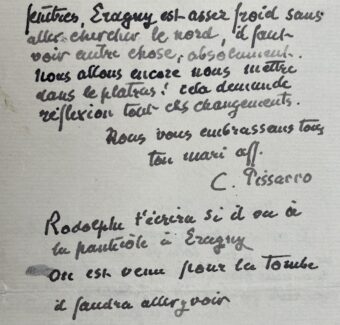 fenêtres, Eragny est assez froid sans
aller chercher le nord, il faut
voir autre chose, absolument.
nous allons encore nous mettre
dans le platras ! cela demande
réflexion tout ces changements.
Nous vous embrassons tous
ton mari aff.
C. Pissarro
Rodolphe t'écrira si il va à
la à Eragny
On est venu pour la Tombe
il faudra aller y voir